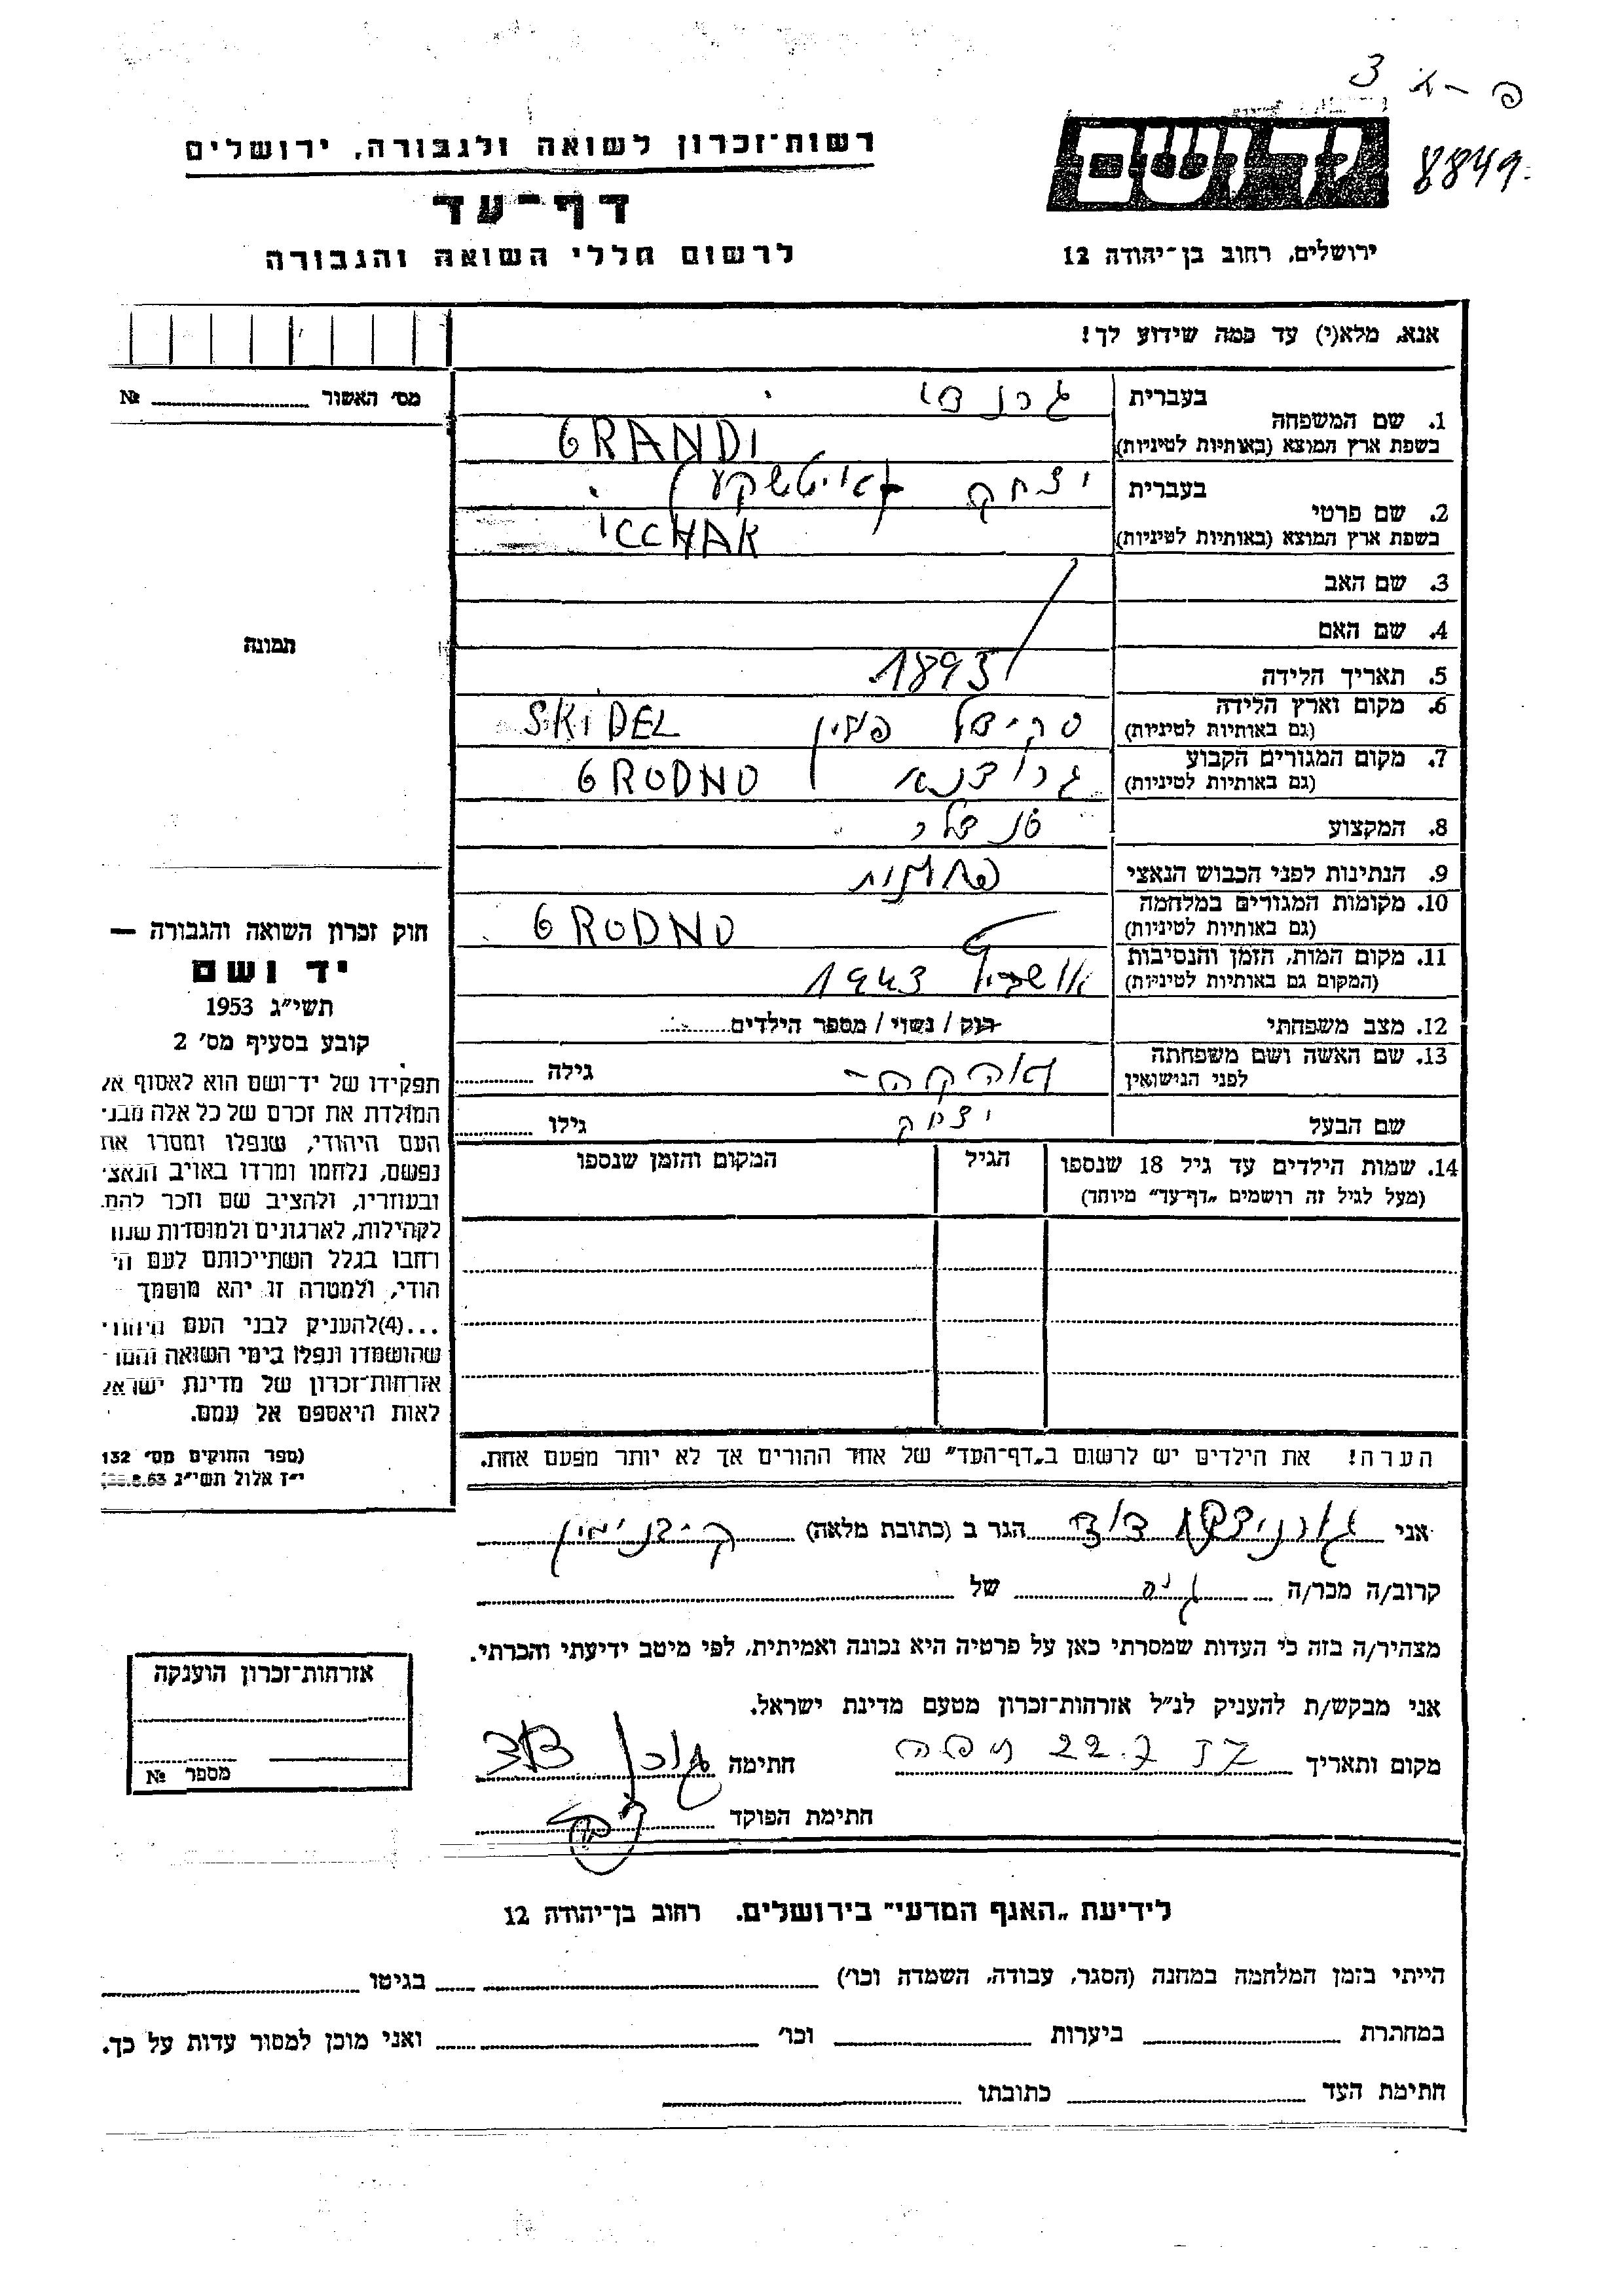 פ-א 3
8849
יד ושם
רשות-זכרון לשואה ולגבורה, ירושלים
דף-עד
לרשום חללי השואה והגבורה
ירושלים, רחוב בן-יהודה 12
אנא, מלא(י) עד כמה שידוע לך!
מס׳ האשור № 
1. שם המשפחה
בעברית גרנדי
בשפת ארץ המוצא (באותיות לטיניות) GRANDI
2. שם פרטי
בעברית יצחק (איטשקע)
בשפת ארץ המוצא (באותיות לטיניות) ICCHAK
3. שם האב
4. שם האם
תמונה
5. תאריך הלידה 1893
6. מקום וארץ הלידה
(גם באותיות לטיניות) סקידל פולין SKIDEL
7. מקום המגורים הקבוע
(גם באותיות לטיניות) גרודנא GRODNO
8. המקצוע סנדלר
9. הנתינות לפני הכבוש הנאצי
10. מקומות המגורים במלחמה
(גם באותיות לטיניות) GRODNO
11. מקום המות, הזמן והנסיבות
(המקום גם באותיות לטיניות) 1943
12. מצב משפחתי רוק / נשוי / מספר הילדים
13. שם האשה ושם משפחתה
לפני הנישואין גילה
שם הבעל יצחק גילו
14. שמות הילדים עד גיל 18 שנספו הגיל המקום והזמן שנספו
(מעל לגיל זה רושמים „דף-עד״ מיוחד)
חוק זכרון השואה והגבורה —
יד ושם
תשי״ג 1953
קובע בסעיף מס׳ 2
תפקידו של יד-ושם הוא לאסוף אל
המולדת את זכרם של כל אלה מבני
העם היהודי, שנפלו ומסרו את
נפשם, נלחמו ומרדו באויב הנאצי
ובעוזריו, ולהציב שם וזכר להם,
לקהילות, לארגונים ולמוסדות שנח
רחבו בגלל השתייכותם לעם הי
הודי, ולמטרה זו יהא מוסמך
...(4)להעניק לבני העם היהודי
שהושמדו ונפלו בימי השואה והמר
אזרחות-זכרון של מדינת ישראל
לאות היאספם אל עמם.
(ספר החוקים מס׳ 132
י״ז אלול תשי״ג
הערה! את הילדים יש לרשום ב„דף-העד״ של אחד ההורים אך לא יותר מפעם אחת.
אני דוד הגר ב (כתובת מלאה)
קרוב/ה מכר/ה גיס של
מצהיר/ה בזה כי העדות שמסרתי כאן על פרטיה היא נכונה ואמיתית, לפי מיטב ידיעתי והכרתי.
אני מבקש/ת להעניק לנ״ל אזרחות-זכרון מטעם מדינת ישראל.
מקום ותאריך 22.7 חיפה חתימה דוד
חתימת הפוקד
אזרחות-זכרון הוענקה
מספר №
לידיעת „האגף המדעי״ בירושלים, רחוב בן-יהודה 12
הייתי בזמן המלחמה במחנה (הסגר, עבודה, השמדה וכו׳) בגיטו
במחתרת ביערות וכו׳ ואני מוכן למסור עדות על כך.
חתימת העד כתובתו